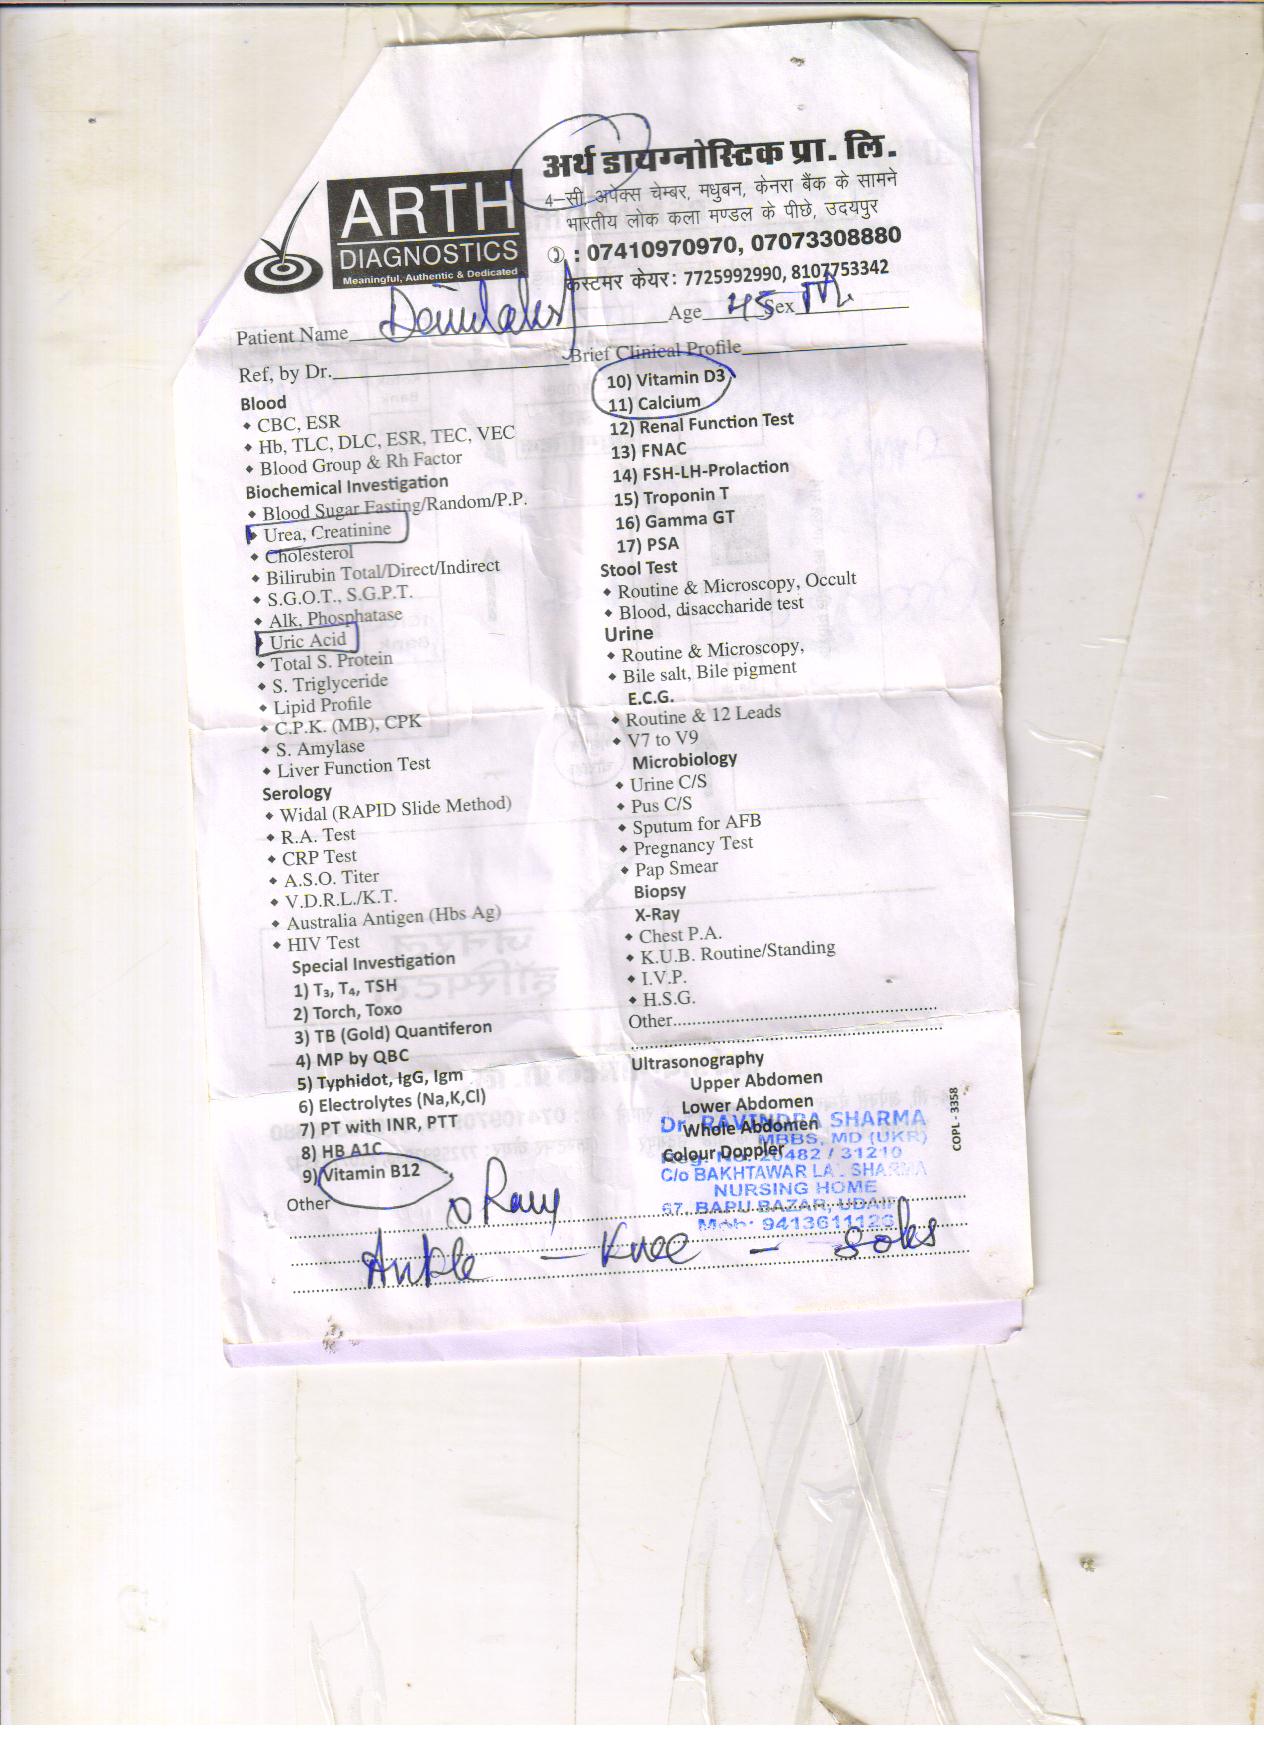 अर्थ डायग्नोस्टिक प्रा. लि.
4-सी, अपेक्स चेम्बर, मधुबन, केनरा बैंक के सामने
भारतीय लोक कला मण्डल के पीछे, उदयपुर
: 07410970970, 07073308880
कस्टमर केयर: 7725992990, 8107753342
ARTH
DIAGNOSTICS
Meaningful, Authentic & Dedicated
Patient Name Age 45 Sex M
Ref, by Dr. Brief Clinical Profile
Blood
• CBC, ESR
• Hb, TLC, DLC, ESR, TEC, VEC
• Blood Group & Rh Factor
Biochemical Investigation
• Blood Sugar Fasting/Random/P.P.
• Urea, Creatinine
• Cholesterol
• Bilirubin Total/Direct/Indirect
• S.G.O.T., S.G.P.T.
• Alk, Phosphatase
• Uric Acid
• Total S. Protein
• S. Triglyceride
• Lipid Profile
• C.P.K. (MB), CPK
• S. Amylase
• Liver Function Test
Serology
• Widal (RAPID Slide Method)
• R.A. Test
• CRP Test
• A.S.O. Titer
• V.D.R.L./K.T.
• Australia Antigen (Hbs Ag)
• HIV Test
Special Investigation
1) T₃, T₄, TSH
2) Torch, Toxo
3) TB (Gold) Quantiferon
4) MP by QBC
5) Typhidot, IgG, Igm
6) Electrolytes (Na,K,Cl)
7) PT with INR, PTT
8) HB A1C
9) Vitamin B12
10) Vitamin D3
11) Calcium
12) Renal Function Test
13) FNAC
14) FSH-LH-Prolaction
15) Troponin T
16) Gamma GT
17) PSA
Stool Test
• Routine & Microscopy, Occult
• Blood, disaccharide test
Urine
• Routine & Microscopy,
• Bile salt, Bile pigment
E.C.G.
• Routine & 12 Leads
• V7 to V9
Microbiology
• Urine C/S
• Pus C/S
• Sputum for AFB
• Pregnancy Test
• Pap Smear
Biopsy
X-Ray
• Chest P.A.
• K.U.B. Routine/Standing
• I.V.P.
• H.S.G.
Other
Ultrasonography
Upper Abdomen
Lower Abdomen
Whole Abdomen
Colour Doppler
Dr. RAVINDRA SHARMA
MBBS, MD (UKR)
Reg. No. 20482 / 31210
C/o BAKHTAWAR LAL SHARMA
NURSING HOME
67, BAPU BAZAR, UDAIP
Mob: 9413611126
COPL - 3358
Other X Ray
Ankle - Knee -